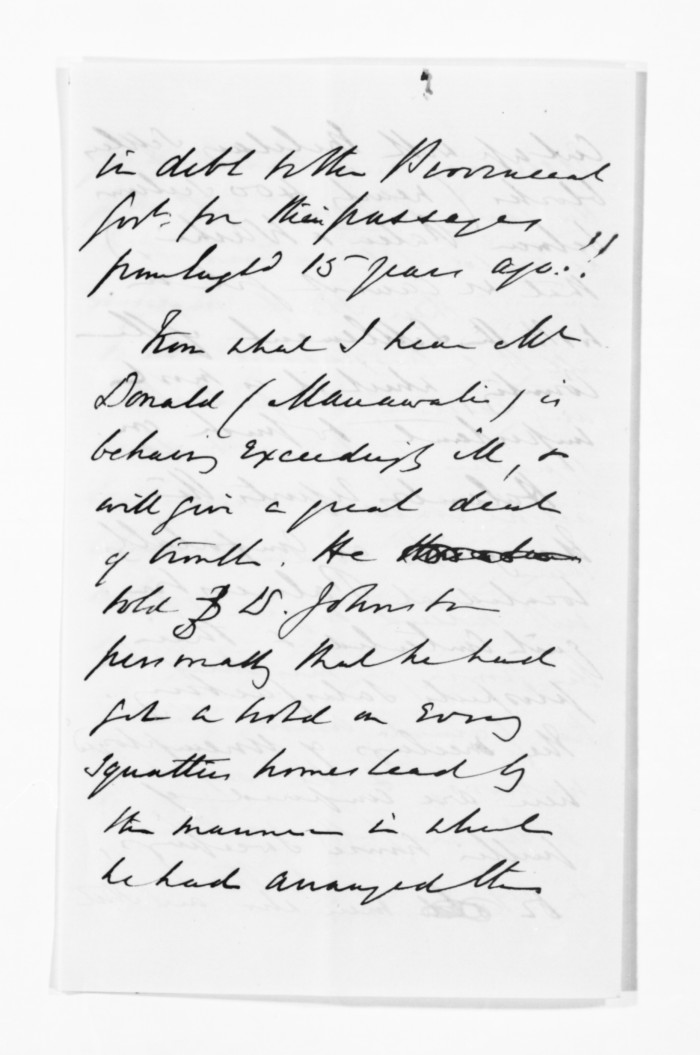 in debt to the Provincial
Govt. for their passages
from Engld 15 years ago.!!
From what I hear Mr
Donald (Manawatu) is
behaving exceedingly ill, &
will give a great deal
of trouble. He
told J. D. Johnston
personally that he had
got a hold on every
squatters homestead by
the manner in which
he had arranged the